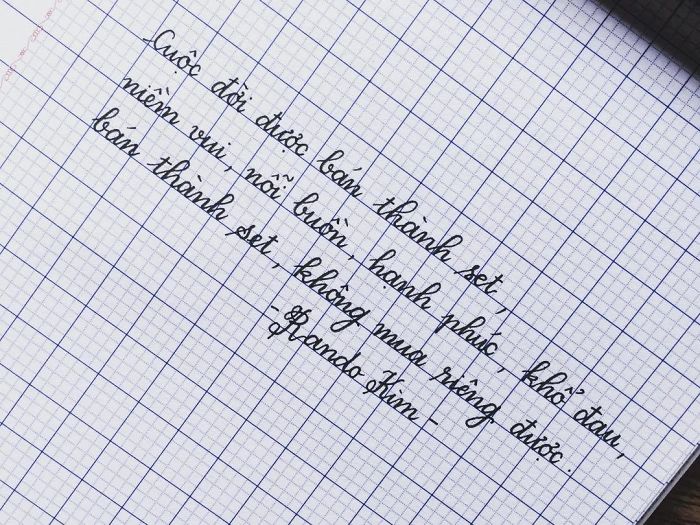 Cuộc đời được bán thành set,
niềm vui, nỗi buồn, hạnh phúc, khổ đau,
bán thành set, không mua riêng được.
- Rando Kim -